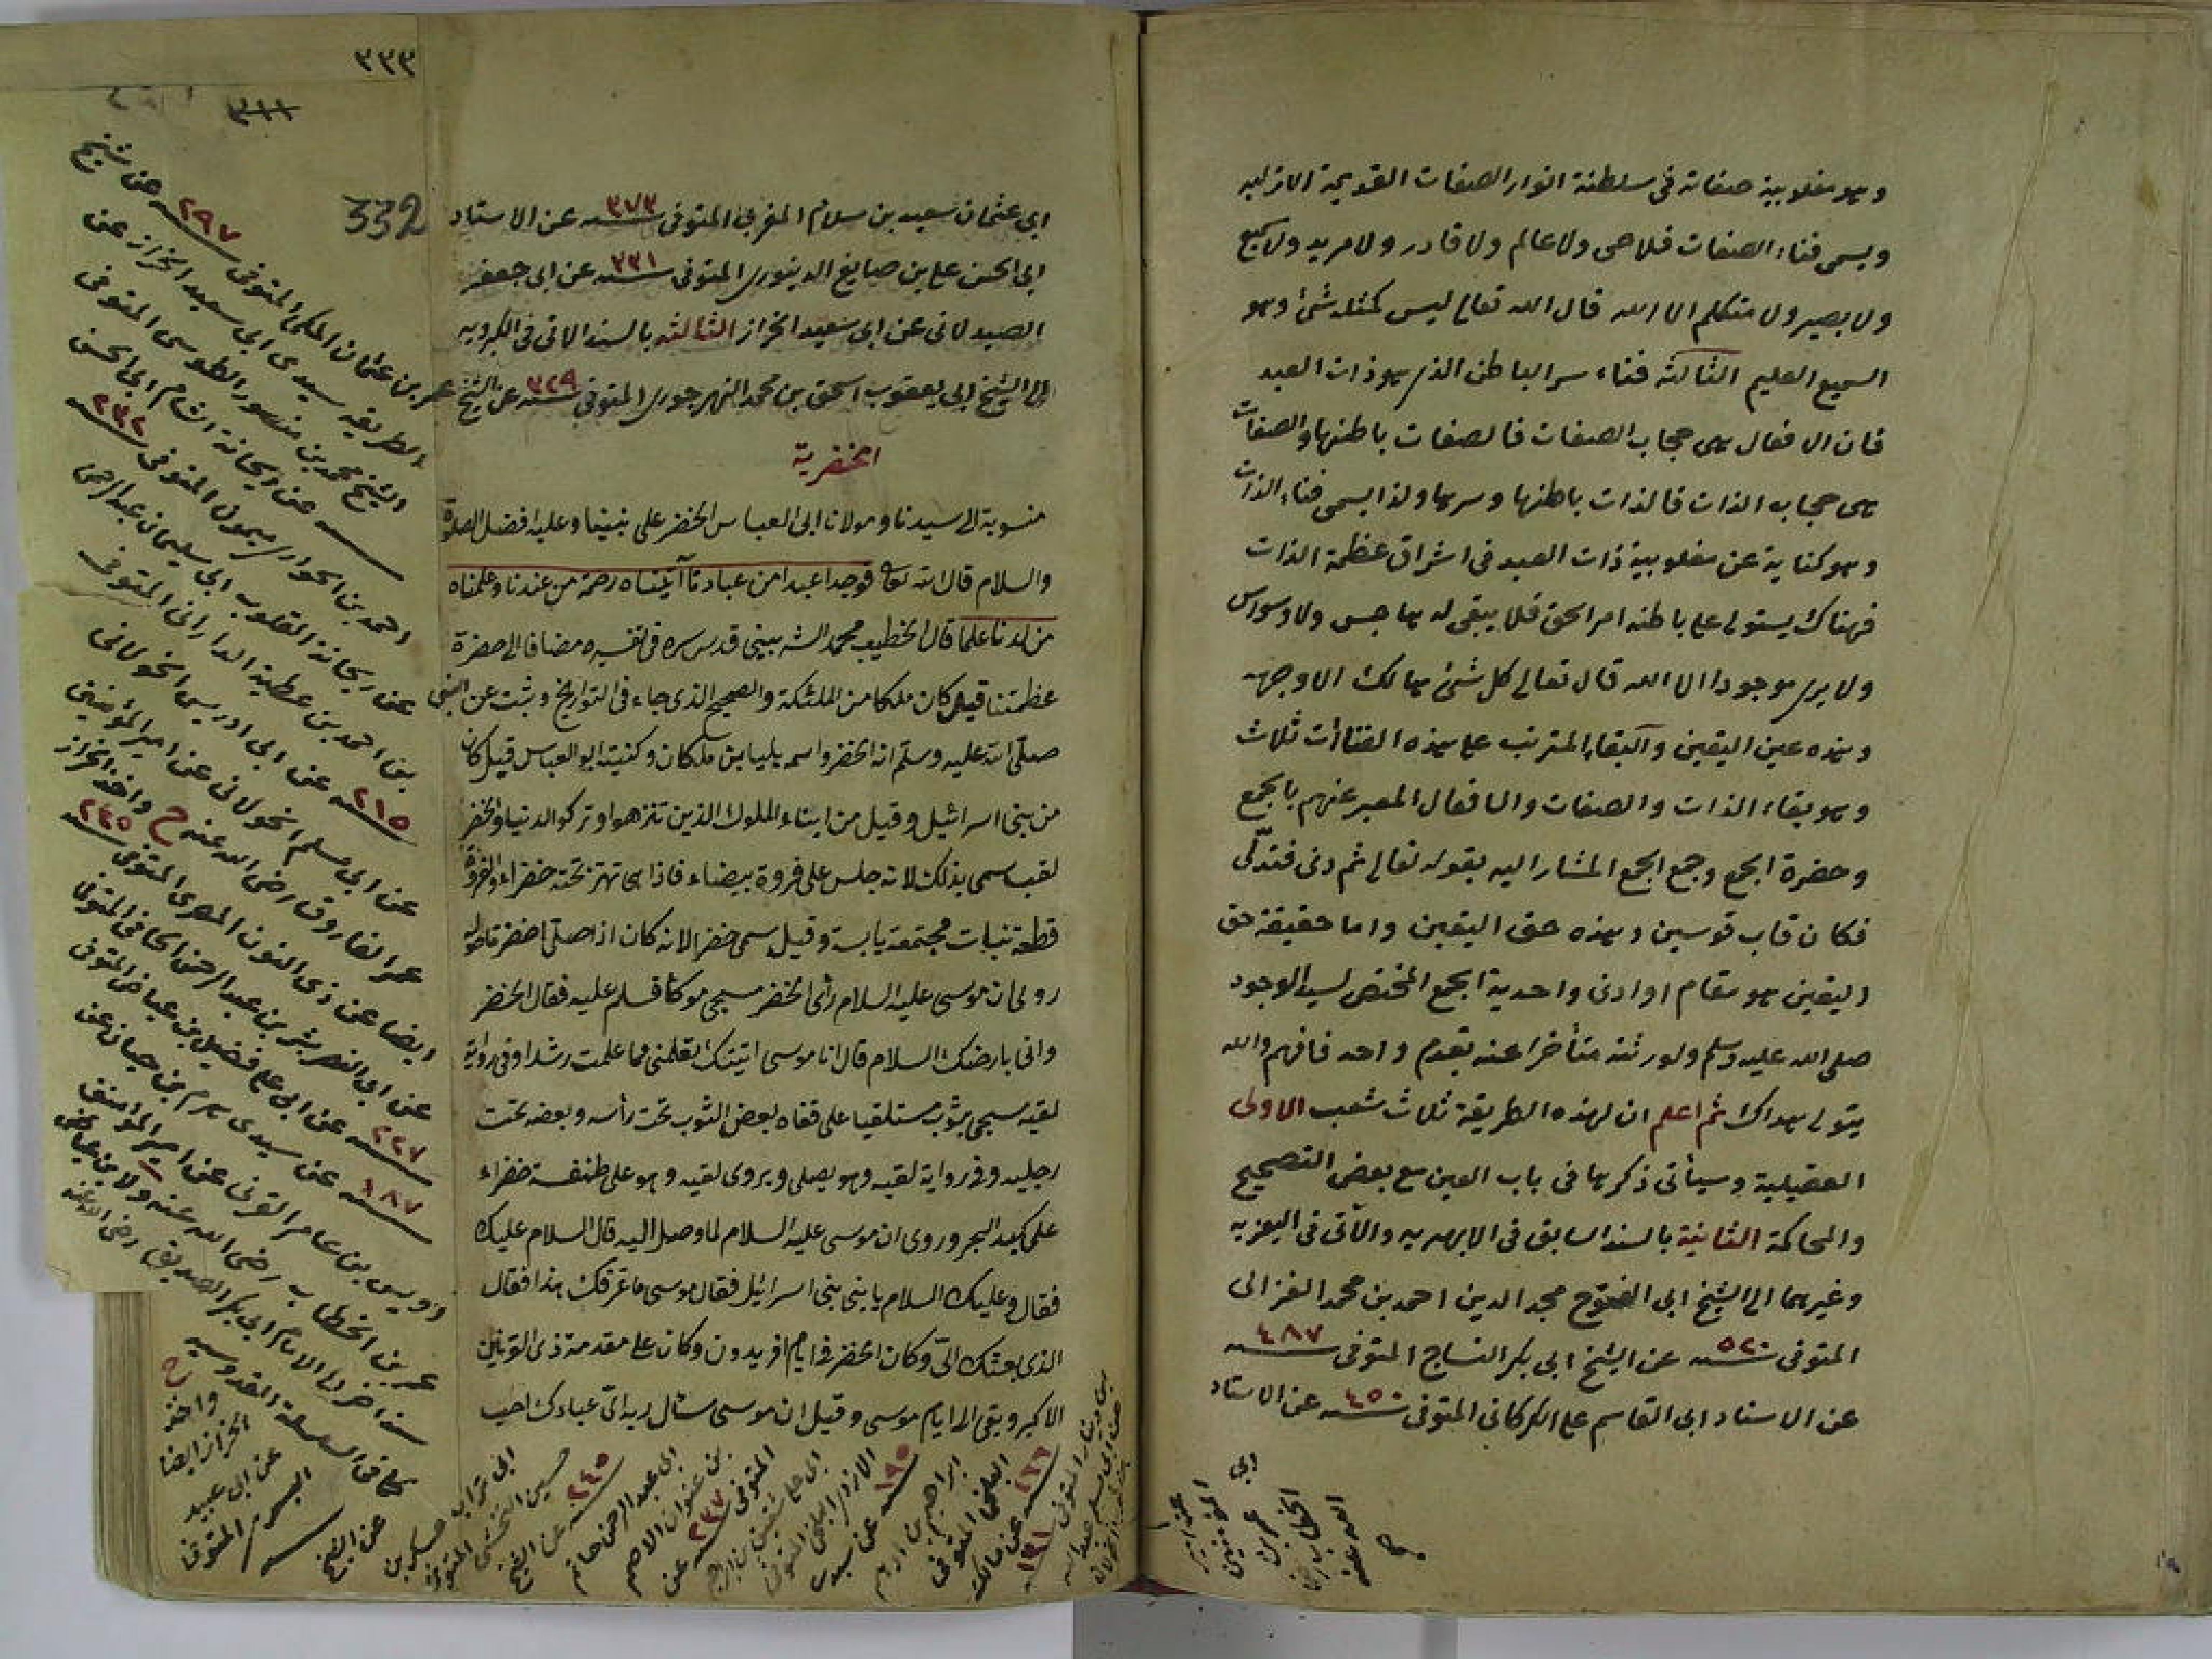 وهو مغلوبية صفاته فى سلطنة انوار الصفات القديمة الازليه
ويسمى فناء الصفات فلا حى ولا عالم ولا قادر ولا مريد ولا سميع
ولا بصير ولا متكلم الا الله قال الله تعالى ليس كمثله شئ وهو
السميع العليم الثالثه فناء سر الباطن الذى هو ذات العبد
فان الافعال هى حجاب الصفات فالصفات باطنها والصفات
هى حجاب الذات فالذات باطنها وسرها ولذا يسمى فناء الذات
وهو كناية عن مغلوبية ذات العبد فى اشراق عظمة الذات
فهناك يستولى على باطنه امر الحق فلا يبقى له هاجس ولا وسواس
ولا يرى موجودا الا الله قال تعالى كل شئ هالك الا وجهه
وهذه عين اليقين والبقاء المترتب على هذه الفناآت ثلاث
وهو بقاء الذات والصفات والافعال المعبر عنهم بالجمع
وحضرة الجمع وجمع الجمع المشار اليه بقوله تعالى ثم دنى فتدلّى
فكان قاب قوسين وهذه حق اليقين واما حقيقة حق
اليقين هو مقام او ادنى واحدية الجمع المختص لسيد الوجود
صلى الله عليه وسلم ولورثته متأخرا عنه بقدم واحد فافهم والله
يتولى هداك ثم اعلم ان لهذه الطريقة ثلاث شعب الاولى
العقيلية وسيأتى ذكرها فى باب العين مع بعض التصحيح
والمحاكمة الثانية بالسند السابق فى الابهريه والآتى فى اليعزيه
وغيرهما الى الشيخ ابى الفتوح مجد الدين احمد بن محمد الغزالى
المتوفى سنه ٥٢٠ عن الشيخ ابى بكر النساج المتوفى سنه ٤٨٧
عن الاستاد ابى القاسم على الكركانى المتوفى سنه ٤٥٠ عن الاستاد
٣٣٣
٣١١
332
ابى عثمان سعيد بن سلام المغربى المتوفى سنه ٣٧٣ عن الاستاد
ابى الحسن على بن صايغ الدينورى المتوفى سنه ٣٣١ عن ابى جعفر
الصيدلانى عن ابى سعيد الخراز الثالثه بالسند الاتى فى الكبرويه
الى الشيخ ابى يعقوب اسحق بن محمد النهرجورى المتوفى سنه ٣٢٩ عن الشيخ
الخضرية
منسوبة الى سيدنا ومولانا ابى العباس الخضر على نبينا وعليه افضل الصلوة
والسلام قال الله تعالى فوجدا عبدا من عبادنا آتيناه رحمة من عندنا وعلمناه
من لدنا علما قال الخطيب محمد الشربينى قدس سره فى تفسيره مضافا الى حضرة
عظمتنا قيل كان ملكا من الملئكة والصحيح الذى جاء فى التواريخ وثبت عن النبى
صلّى الله عليه وسلم انه الخضر واسمه بليا بن ملكان وكنيته ابو العباس قيل كان
من بنى اسرائيل وقيل من ابناء الملوك الذين تزهدوا وتركوا الدنيا والخضر
لقب سمى بذلك لانه جلس على فروة بيضاء فاذا هى تهتز تحته خضراء والفروة
قطعة نبات مجتمعة يابسة وقيل سمى خضرا لانه كان اذا صلى اخضر ما حوله
روى ان موسى عليه السلام رأى الخضر مسجى موكأ فسلم عليه فقال الخضر
وانى بارضك السلام قال انا موسى اتيتك لتعلمنى مما علمت رشدا وفى رواية
لقيه مسجى بثوب مستلقيا على قفاه بعض الثوب تحت رأسه وبعضه تحت
رجليه وفى رواية لقيه وهو يصلى ويروى لقيه وهو على طنفسة خضراء
على كبد البحر وروى ان موسى عليه السلام لما وصل اليه قال السلام عليك
فقال وعليك السلام يا نبى بنى اسرائيل فقال موسى ما عرفك هذا فقال
الذى بعثك الىّ وكان الخضر فى ايام افريدون وكان على مقدمة ذى القرنين
الاكبر وبقى الى ايام موسى وقيل ان موسى سئال ربه اىّ عبادك احب
عمر بن عثمان المكى المتوفى سنه ٢٩٧ عن شيخ
الطريقه سيدى ابى سعيد الخراز عن
الشيخ محمد بن منصور الطوسى المتوفى
سنه عن ريحانة الشام ابى الحسن
احمد بن الحوارى ميمون المتوفى سنه ٢٣٢
عن ريحانة القلوب ابى سليمان عبد الرحمن
بن احمد بن عطية الدارانى المتوفى
سنه ٢١٥ عن ابى ادريس الخولانى
عن ابى مسلم الخولانى عن امير المؤمنين
عمر الفاروق رضى الله عنه ح واخذ الخراز
ايضا عن ذى النون المصرى المتوفى سنه ٢٤٥
عن ابى النصر بشر بن عبد الرحمن الحافى المتوفى
سنه ٢٢٧ عن ابى على فضيل بن عياض المتوفى
سنه ١٨٧ عن سيدى هرم بن حيان عن
اويس بن عامر القرنى عن امير المؤمنين
عمر بن الخطاب رضى الله عنه ولابن عياض
سند اخر الى الامام ابى بكر الصديق رضى الله عنه
كما فى السلسلة القدوسيه
ح واخذ
الخراز ايضا
عن ابى عبيد
البسرى المتوفى
سنه عن الشيخ
ابى تراب عسكر بن
حسين النخشبى المتوفى
سنه ٢٤٥ عن الشيخ
ابى عبد الرحمن حاتم
بن عنوان الاصم
المتوفى سنه ٢٣٧ عن
ابى على شقيق بن ابراهيم
الازدى البلخى المتوفى
سنه ١٩٥ عن سيدى
ابراهيم بن ادهم
البلخى المتوفى